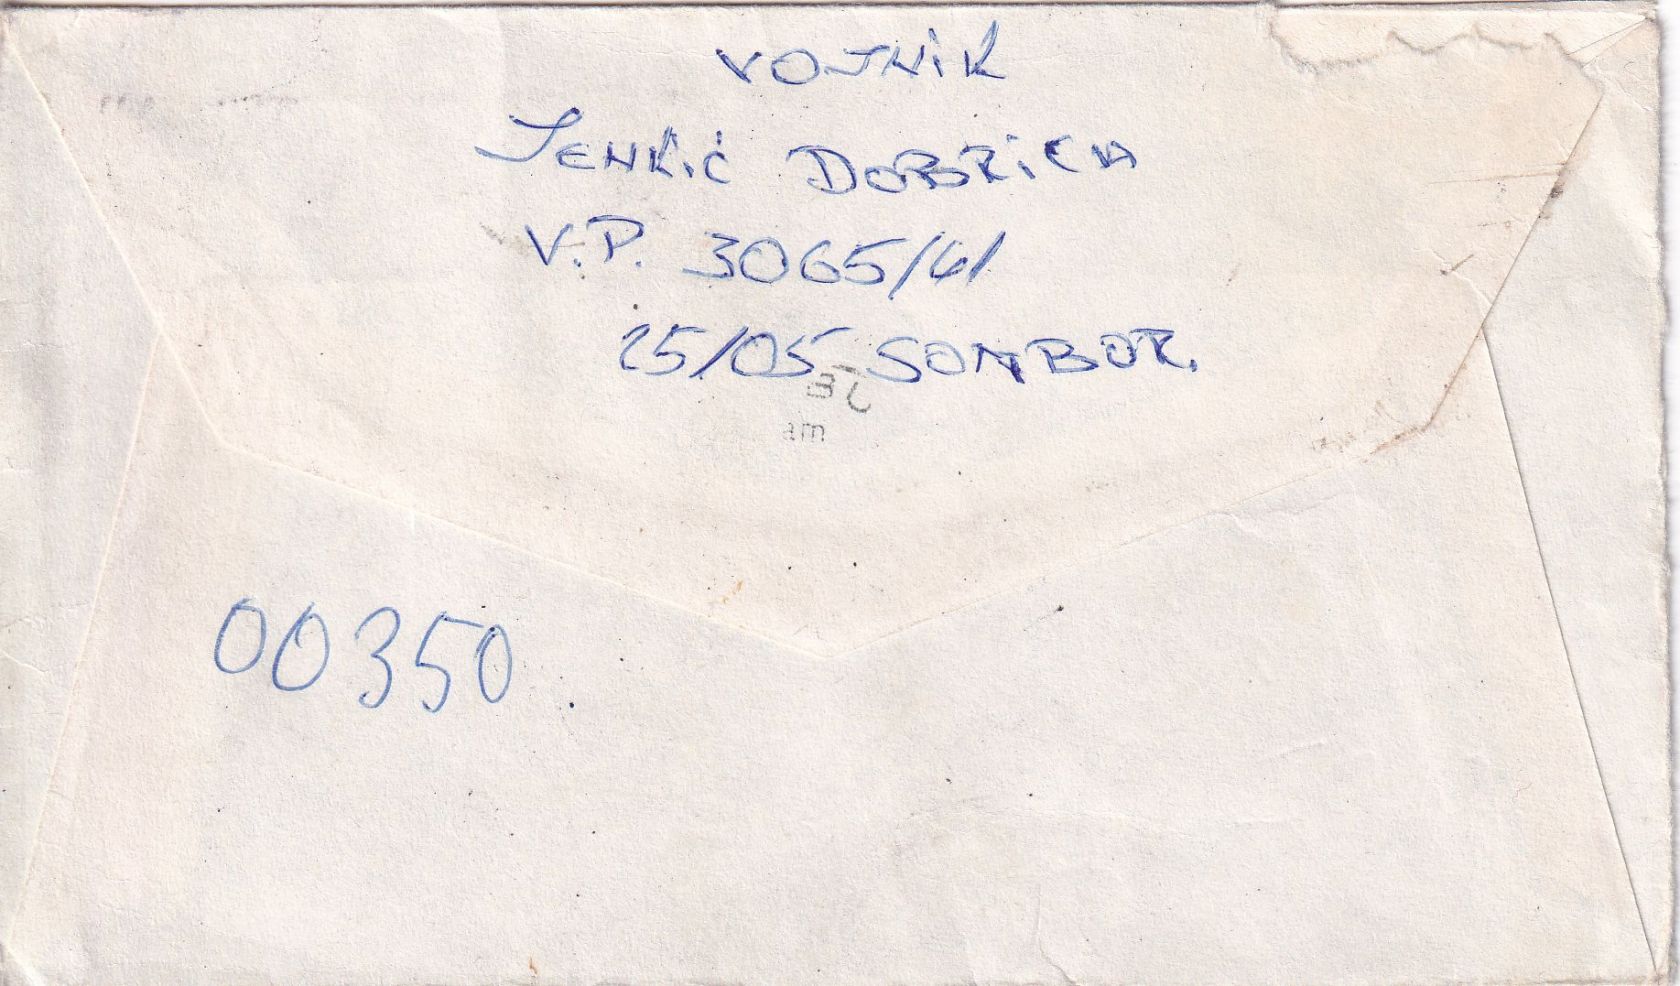 VOJNIK
JENKIĆ DOBRICA
V.P. 3065/61
25/05 SOMBOR.
am
00350.